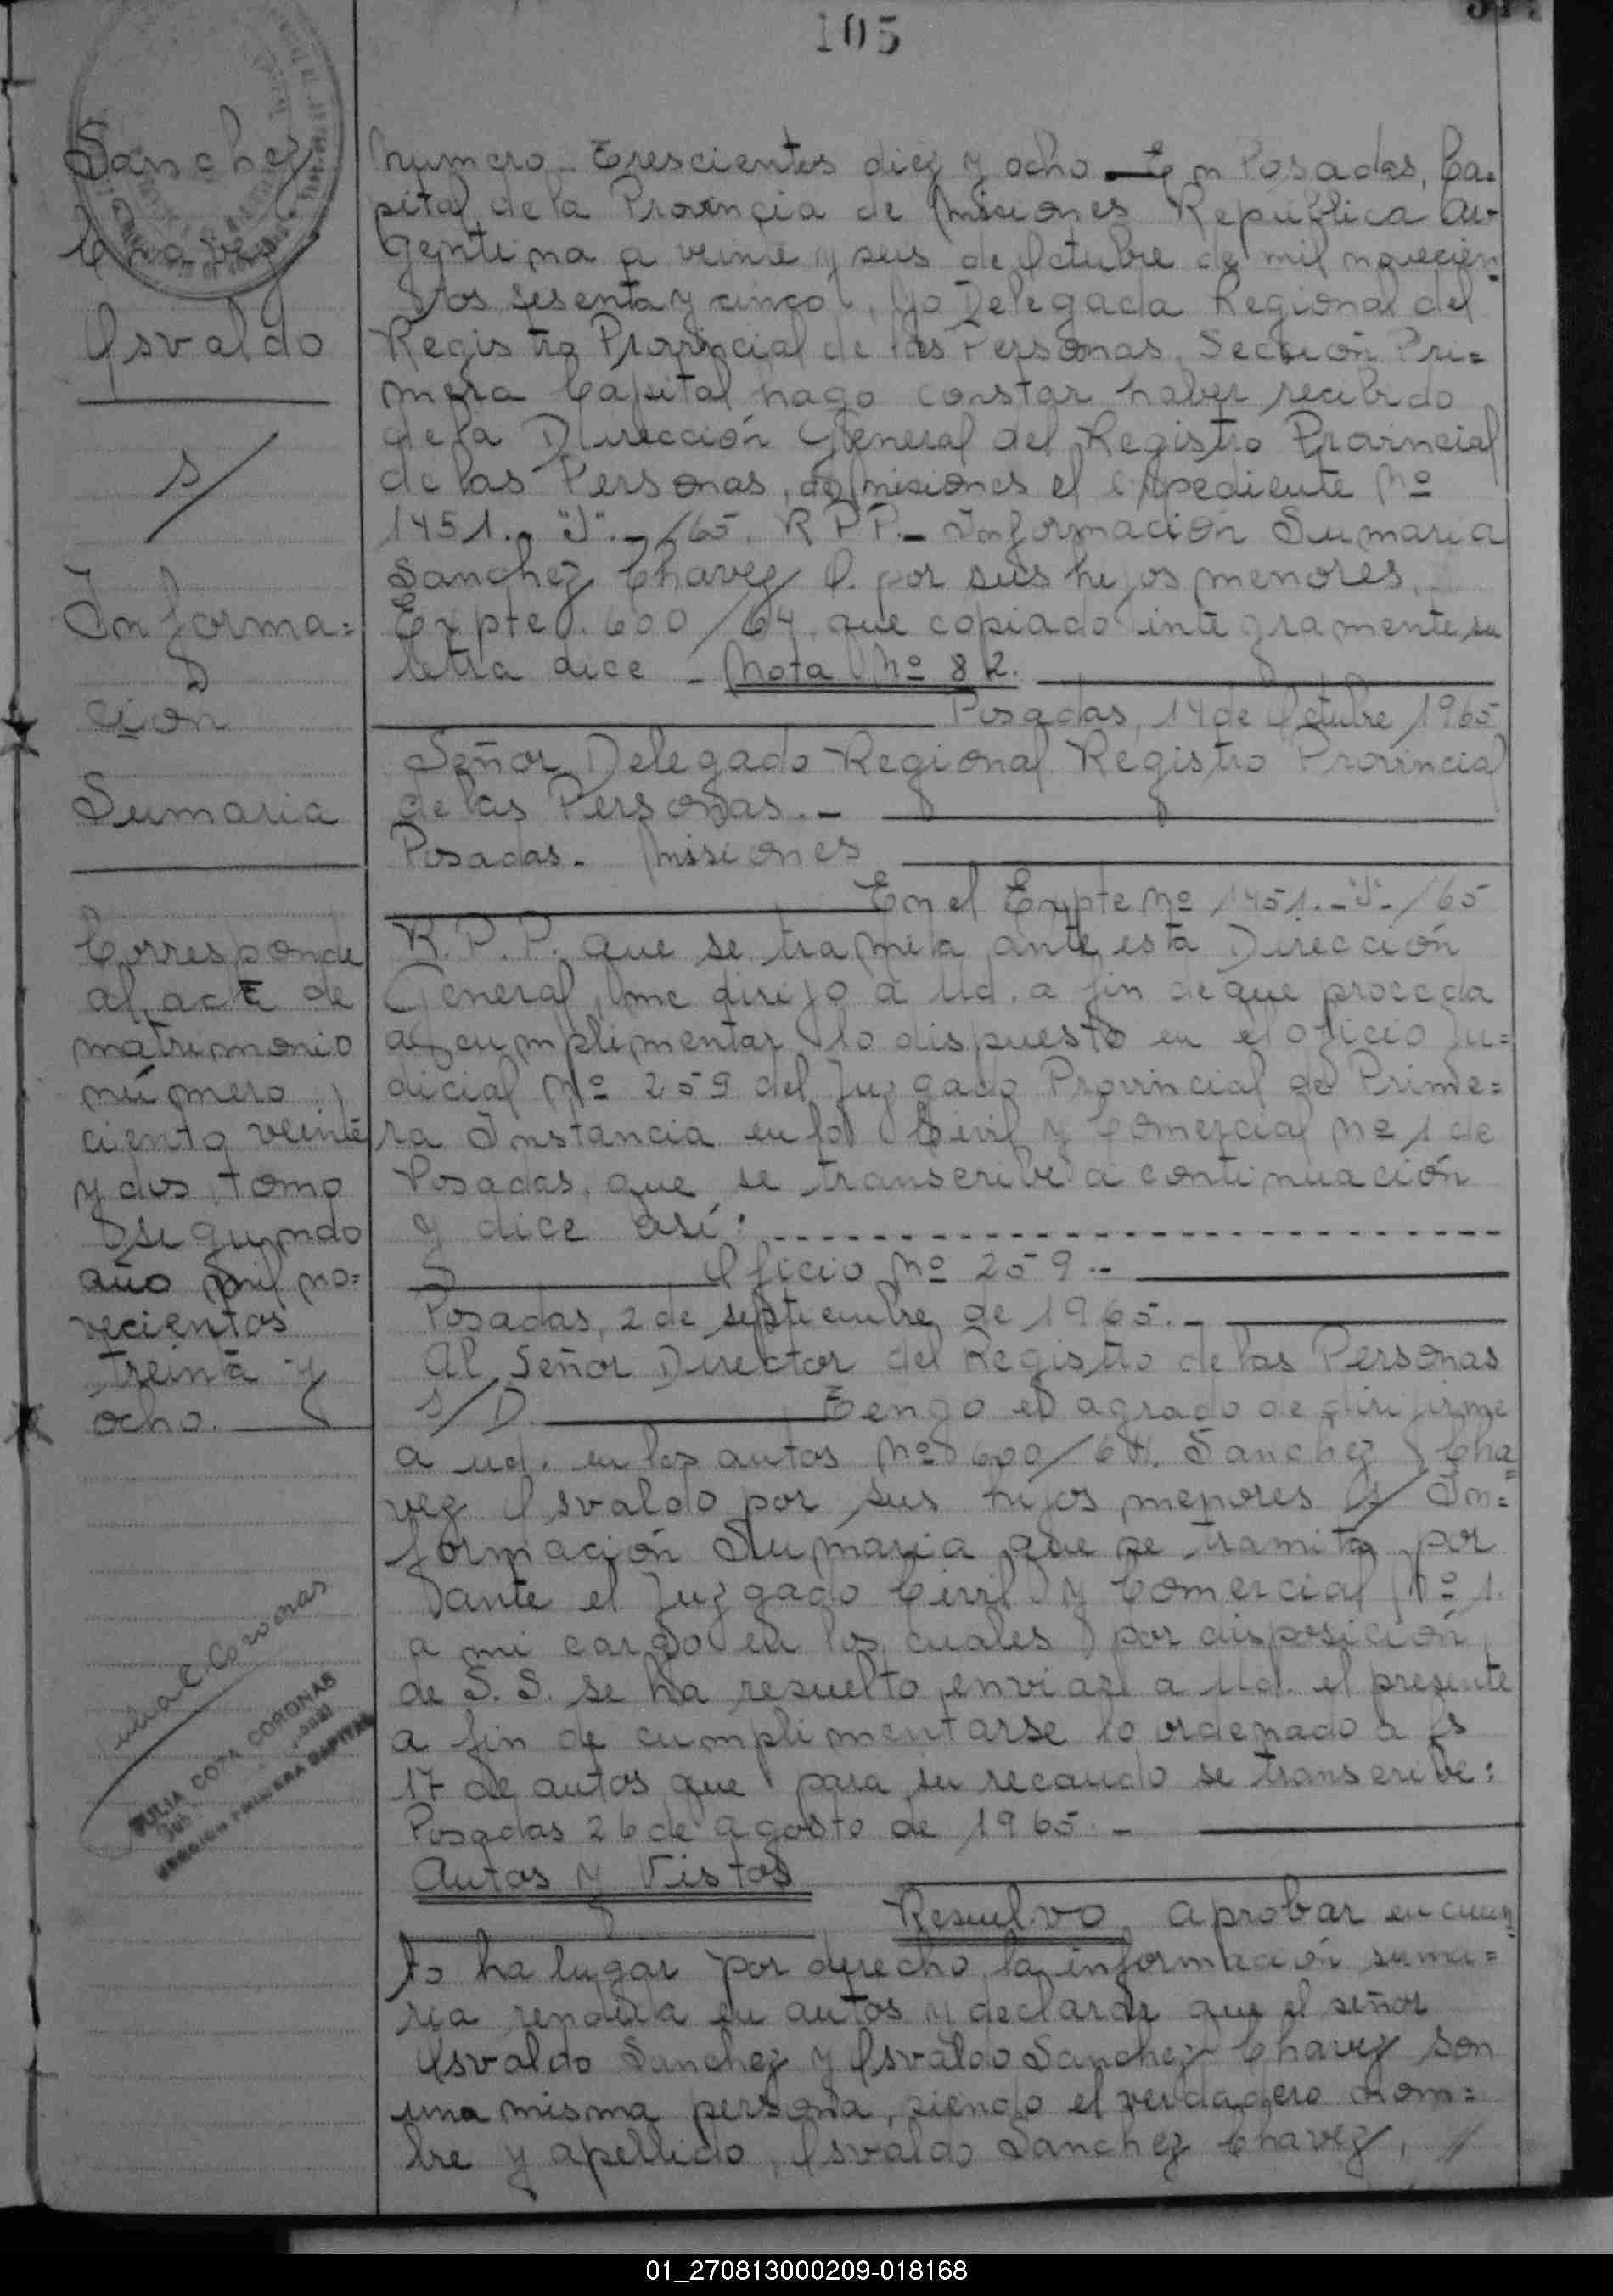 105
Sanchez
Chavez
Osvaldo
s/
Informa=
cion
Sumaria
Corresponde
al acta de
matrimonio
número
ciento veinte
y dos, tomo
segundo
año mil no=
vecientos
treinta y
ocho.
Julia C Coronas
JULIA COPA CORONAS
SECCION PRIMERA CAPITAL
Numero Trescientos diez y ocho.— En Posadas, Ca=
pital de la Provincia de Misiones Republica Ar-
gentina a veinte y seis de Octubre de mil novecien
tos sesenta y cinco, Yo Delegada Regional del
Registro Provincial de las Personas, Sección Pri=
mera Capital hago constar haber recibido
de la Dirección General del Registro Provincial
de las Personas, de Misiones el expediente Nº
1451.- "J".-/65. R P P.- Información Sumaria
Sanchez Chavez O. por sus hijos menores.
Expte. 600/64, que copiado integramente su
letra dice - Nota Nº 82.
Posadas, 14 de Octubre 1965
Señor Delegado Regional Registro Provincial
de las Personas.-
Posadas. Misiones
En el Expte Nº 1451.-"J"-/65
R. P. P. que se tramita ante esta Dirección
General, me dirijo a Ud. a fin de que proceda
a cumplimentar lo dispuesto en el oficio Ju=
dicial Nº 259 del Juzgado Provincial de Prime=
ra Instancia en lo Civil y Comercial Nº 1 de
Posadas, que se transcribe a continuación
y dice así:
Oficio Nº 259.-
Posadas, 2 de septiembre de 1965.-
Al Señor Director del Registro de las Personas
S/D. Tengo el agrado de dirijirme
a ud. en los autos Nº 600/64. Sanchez Cha=
vez Osvaldo por sus hijos menores s/ In=
formación Sumaria que se tramita por
ante el Juzgado Civil y Comercial Nº 1.
a mi cargo en los cuales por disposición
de S. S. se ha resuelto enviar a Ud. el presente
a fin de cumplimentarse lo ordenado a fs
17 de autos que para su recaudo se transcribe:
Posadas 26 de agosto de 1965.-
Autos y Vistos
Resuelvo, aprobar en cuan=
to ha lugar por derecho la información suma=
ria rendida en autos y declarar que el señor
Osvaldo Sanchez y Osvaldo Sanchez Chavez son
una misma persona, siendo el verdadero nom=
bre y apellido, Osvaldo Sanchez Chavez, //
01_270813000209-018168